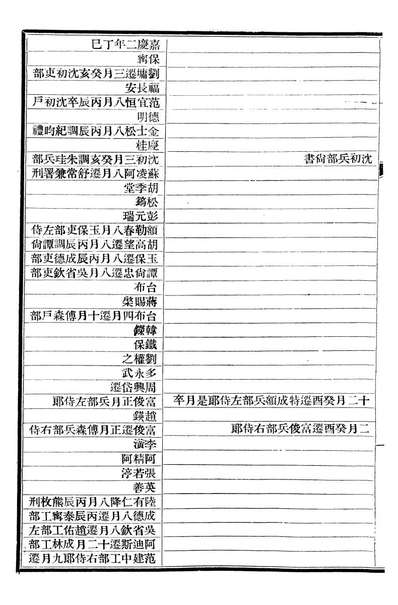 嘉慶二年丁巳
保寧
劉墉遷三月癸亥沈初吏部
福長安
范宜恒八月丙辰卒沈初戶
德明
金士松八月丙辰調紀昀禮
慶桂
沈初兵部尙書
沈初三月癸亥調朱珪兵部
蘇凌阿八月遷舒常兼署刑
胡季堂
松筠
彭元瑞
額勒春八月玉保吏部左侍
胡高望遷八月丙辰調譚尙
玉保八月遷丙辰成德吏部
譚尙忠遷八月吳省欽吏部
台布
蔣賜棨
台布四月遷十月傅森戶部
韓鑅
鐵保
劉權之
多永武
周興岱遷
十二月癸酉遷特成額兵部左侍郎是月卒
富俊正月兵部左侍郎
趙鍈
二月癸酉遷富俊兵部右侍郎
富俊遷正月傅森兵部右侍
李潢
阿精阿
張若渟
英善
陸有仁降八月丙辰熊枚刑
成德八月遷丙辰泰寧工部
吳省欽八月遷趙佑工部左
阿迪斯遷十二月成林工部
范建中工部右侍郎九月遷